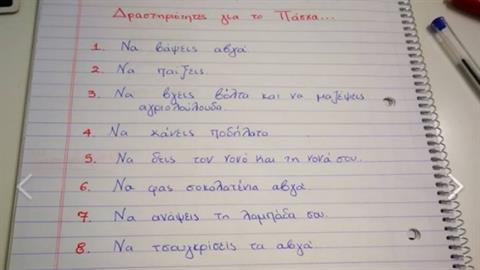 Δραστηριότητες για το Πάσχα...
1. Να βάψεις αβγά.
2. Να παίξεις.
3. Να βγεις βόλτα και να μαζέψεις
αγριολούλουδα.
4. Να κάνεις ποδήλατο.
5. Να δεις τον νονό και τη νονά σου.
6. Να φας σοκολατένια αβγά.
7. Να ανάψεις τη λαμπάδα σου.
8. Να τσουγκρίσεις τα αβγά.